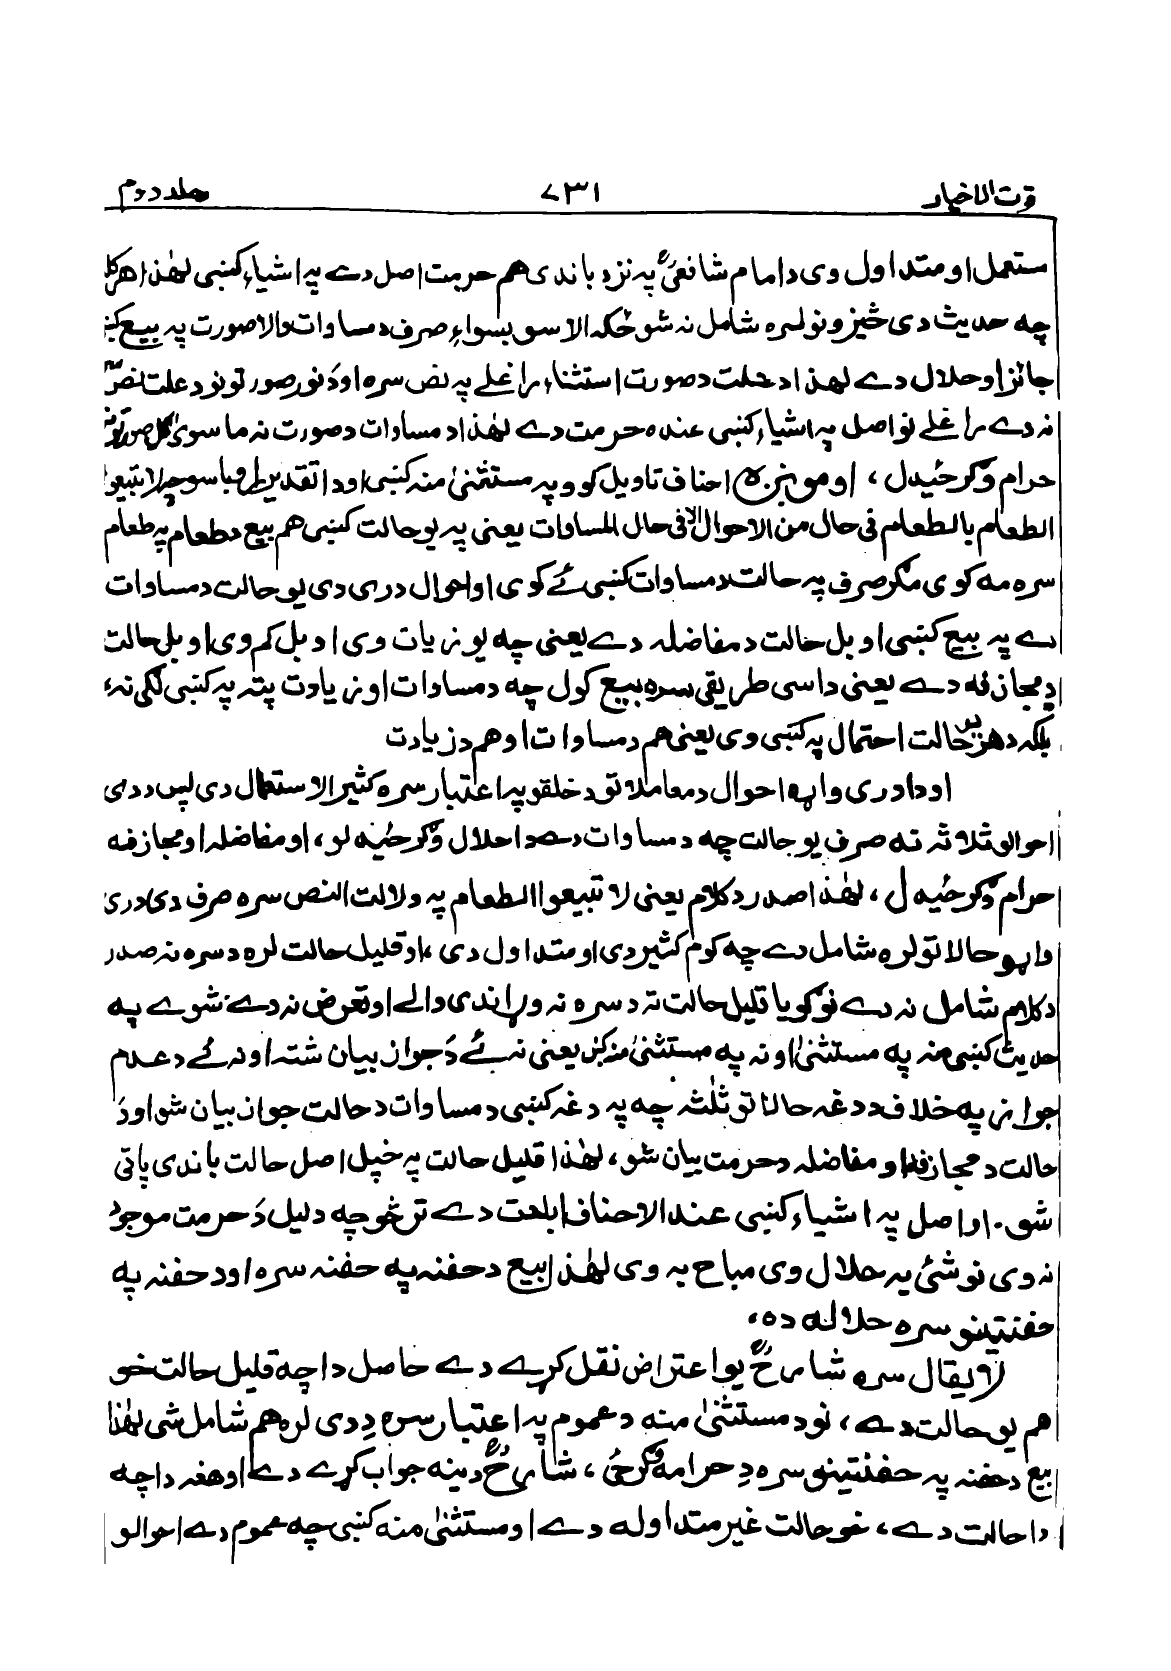 قوت الاخیار ۷۳۱ جلد دوم
مستعمل او متداول وی د امام شافعیؒ په نزد باندی هم حرمت اصل دے په اشیاء کښی لهٰذا هر کله
چه حدیث دی څیزونو لره شامل نه شو ځکه الا سواء بسواءٍ صرف د مساوات والا صورت په بیع کښ
جائز او حلال دے لهٰذا د حلت د صورت استثناء راغلے په نص سره او د نورو صورتونو د علت نص
نه دے راغلے نو اصل په اشیاء کښی عنده حرمت دے لهٰذا د مساوات د صورت نه ما سویٰ کل صورتونه
حرام وګرځیدل، او مونږه احناف تاویل کوو په مستثنیٰ منه کښی او دا تقدیر را وباسو چه لا تبیعوا
الطعام بالطعام فی حال من الاحوال الا فی حال المساوات یعنی په یو حالت کښی هم بیع د طعام په طعام
سره مه کوی مګر صرف په حالت د مساوات کښی ئے کوی او احوال دری دی یو حالت د مساوات
دے په بیع کښی او بل حالت د مفاضله دے یعنی چه یو زیات وی او بل کم وی او بل حالت
د مجازفه دے یعنی داسی طریقی سره بیع کول چه د مساوات او زیادت پته په کښی لګی نه،
بلکه د هر یو حالت احتمال په کښی وی یعنی هم د مساوات او هم د زیادت
او دا دری واړه احوال د معاملاتو د خلقو په اعتبار سره کثیر الاستعمال دی پس د دی
احوالو ثلاثه نه صرف یو حالت چه د مساوات دے دا حلال وګرځیه لو، او مفاضله او مجازفه
حرام وګرځیه ل، لهٰذا صدر د کلام یعنی لا تبیعوا الطعام په دلالت النص سره صرف دی دری
واړو حالاتو لره شامل دے چه کوم کثیر دی او متداول دی، او قلیل حالت لره د سره نه صدر
د کلام شامل نه دے نو ګویا قلیل حالت ته د سره نه وړاندی والے او تعرض نه دے شوے په
حدیث کښی نه په مستثنیٰ او نه په مستثنیٰ منه کښ یعنی نه ئے د جواز بیان شته او نه ئے د عدم
جواز په خلاف د دغه حالاتو ثلٰثه چه په دغه کښی د مساوات د حالت جواز بیان شو او د
حالت د مجازفه او مفاضله د حرمت بیان شو، لهٰذا قلیل حالت په خپل اصل حالت باندی پاتی
شو. او اصل په اشیاء کښی عند الاحناف اباحت دے تر څو چه دلیل د حرمت موجود
نه وی نو شئ به حلال وی مباح به وی لهٰذا بیع د حفنه په حفنه سره او د حفنه په
حفنتینو سره حلاله ده،
لا یقال سره شارحؒ یو اعتراض نقل کړے دے حاصل دا چه قلیل حالت خو
هم یو حالت دے، نو د مستثنیٰ منه د عموم په اعتبار سره دِ دی لره هم شامل شی لهٰذا
بیع د حفنه په حفنتینو سره دِ حرامه وګرځی، شارحؒ دینه جواب کړے دے او هغه دا چه
دا حالت دے، خو حالت غیر متداوله دے او مستثنیٰ منه کښی چه عموم دے احوالو